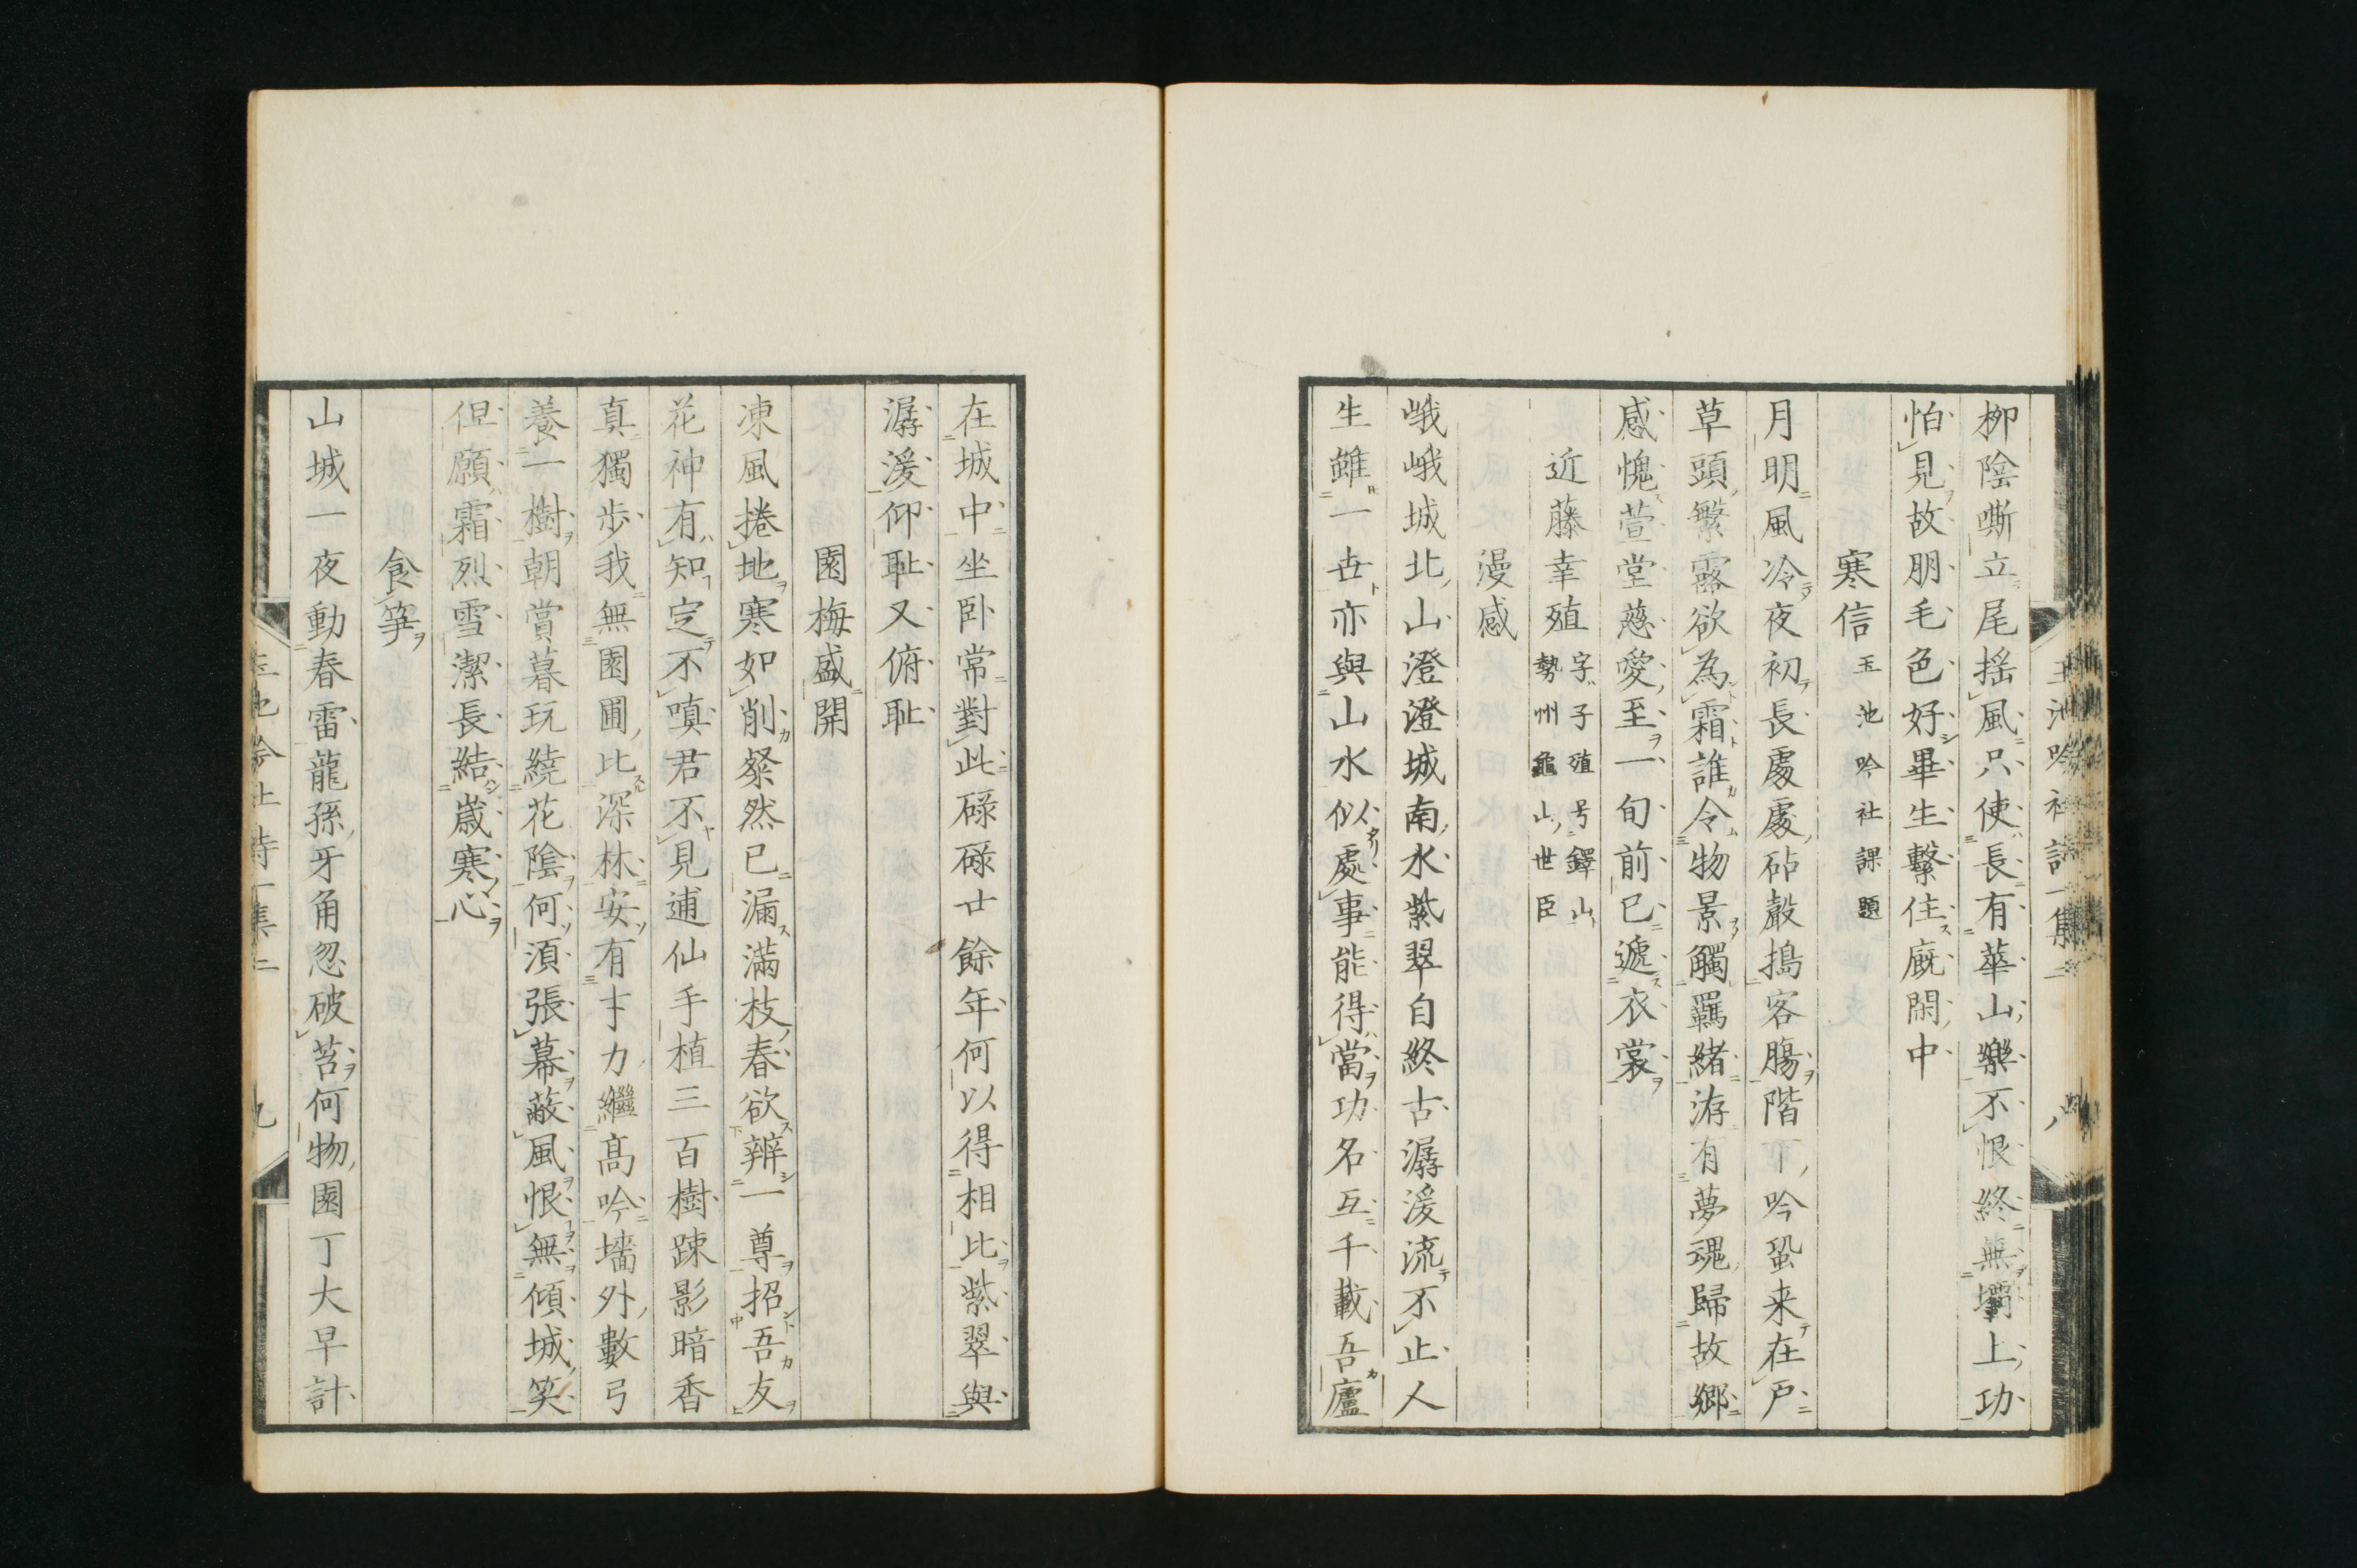 柳陰嘶立尾揺風只使長有華山樂不恨終無壩上功
怕見故朋毛色好畢生繋住廐閑中
寒信 玉池吟社課題
月明風冷夜初長處處砧聲搗客膓階下吟蛩来在戸
草頭繁露欲為霜誰令物景觸羈緒洊有夢魂歸故郷
感愧萱堂慈愛至一旬前已遞衣裳
近藤幸殖 字子殖号鐸山
勢州龜山世臣
漫感
峨峨城北山澄澄城南水紫翠自終古潺湲流不止人
生雖一世亦與山水似處事能得當功名亙千載吾廬
在城中坐卧常對此碌碌廿餘年何以得相比紫翠與
潺湲仰耻又俯耻
園梅盛開
凍風捲地寒如削粲然已漏滿枝春欲辨一尊招吾友
花神有知定不嗔君不見逋仙手植三百樹踈影暗香
真獨歩我無園圃比深林安有才力繼髙吟墻外數弓
養一樹朝賞暮玩繞花陰何湏張幕蔽風恨無傾城笑
但願霜烈雪潔長結歳寒心
食筍
山城一夜動春雷龍孫牙角忽破苔何物園丁大早計